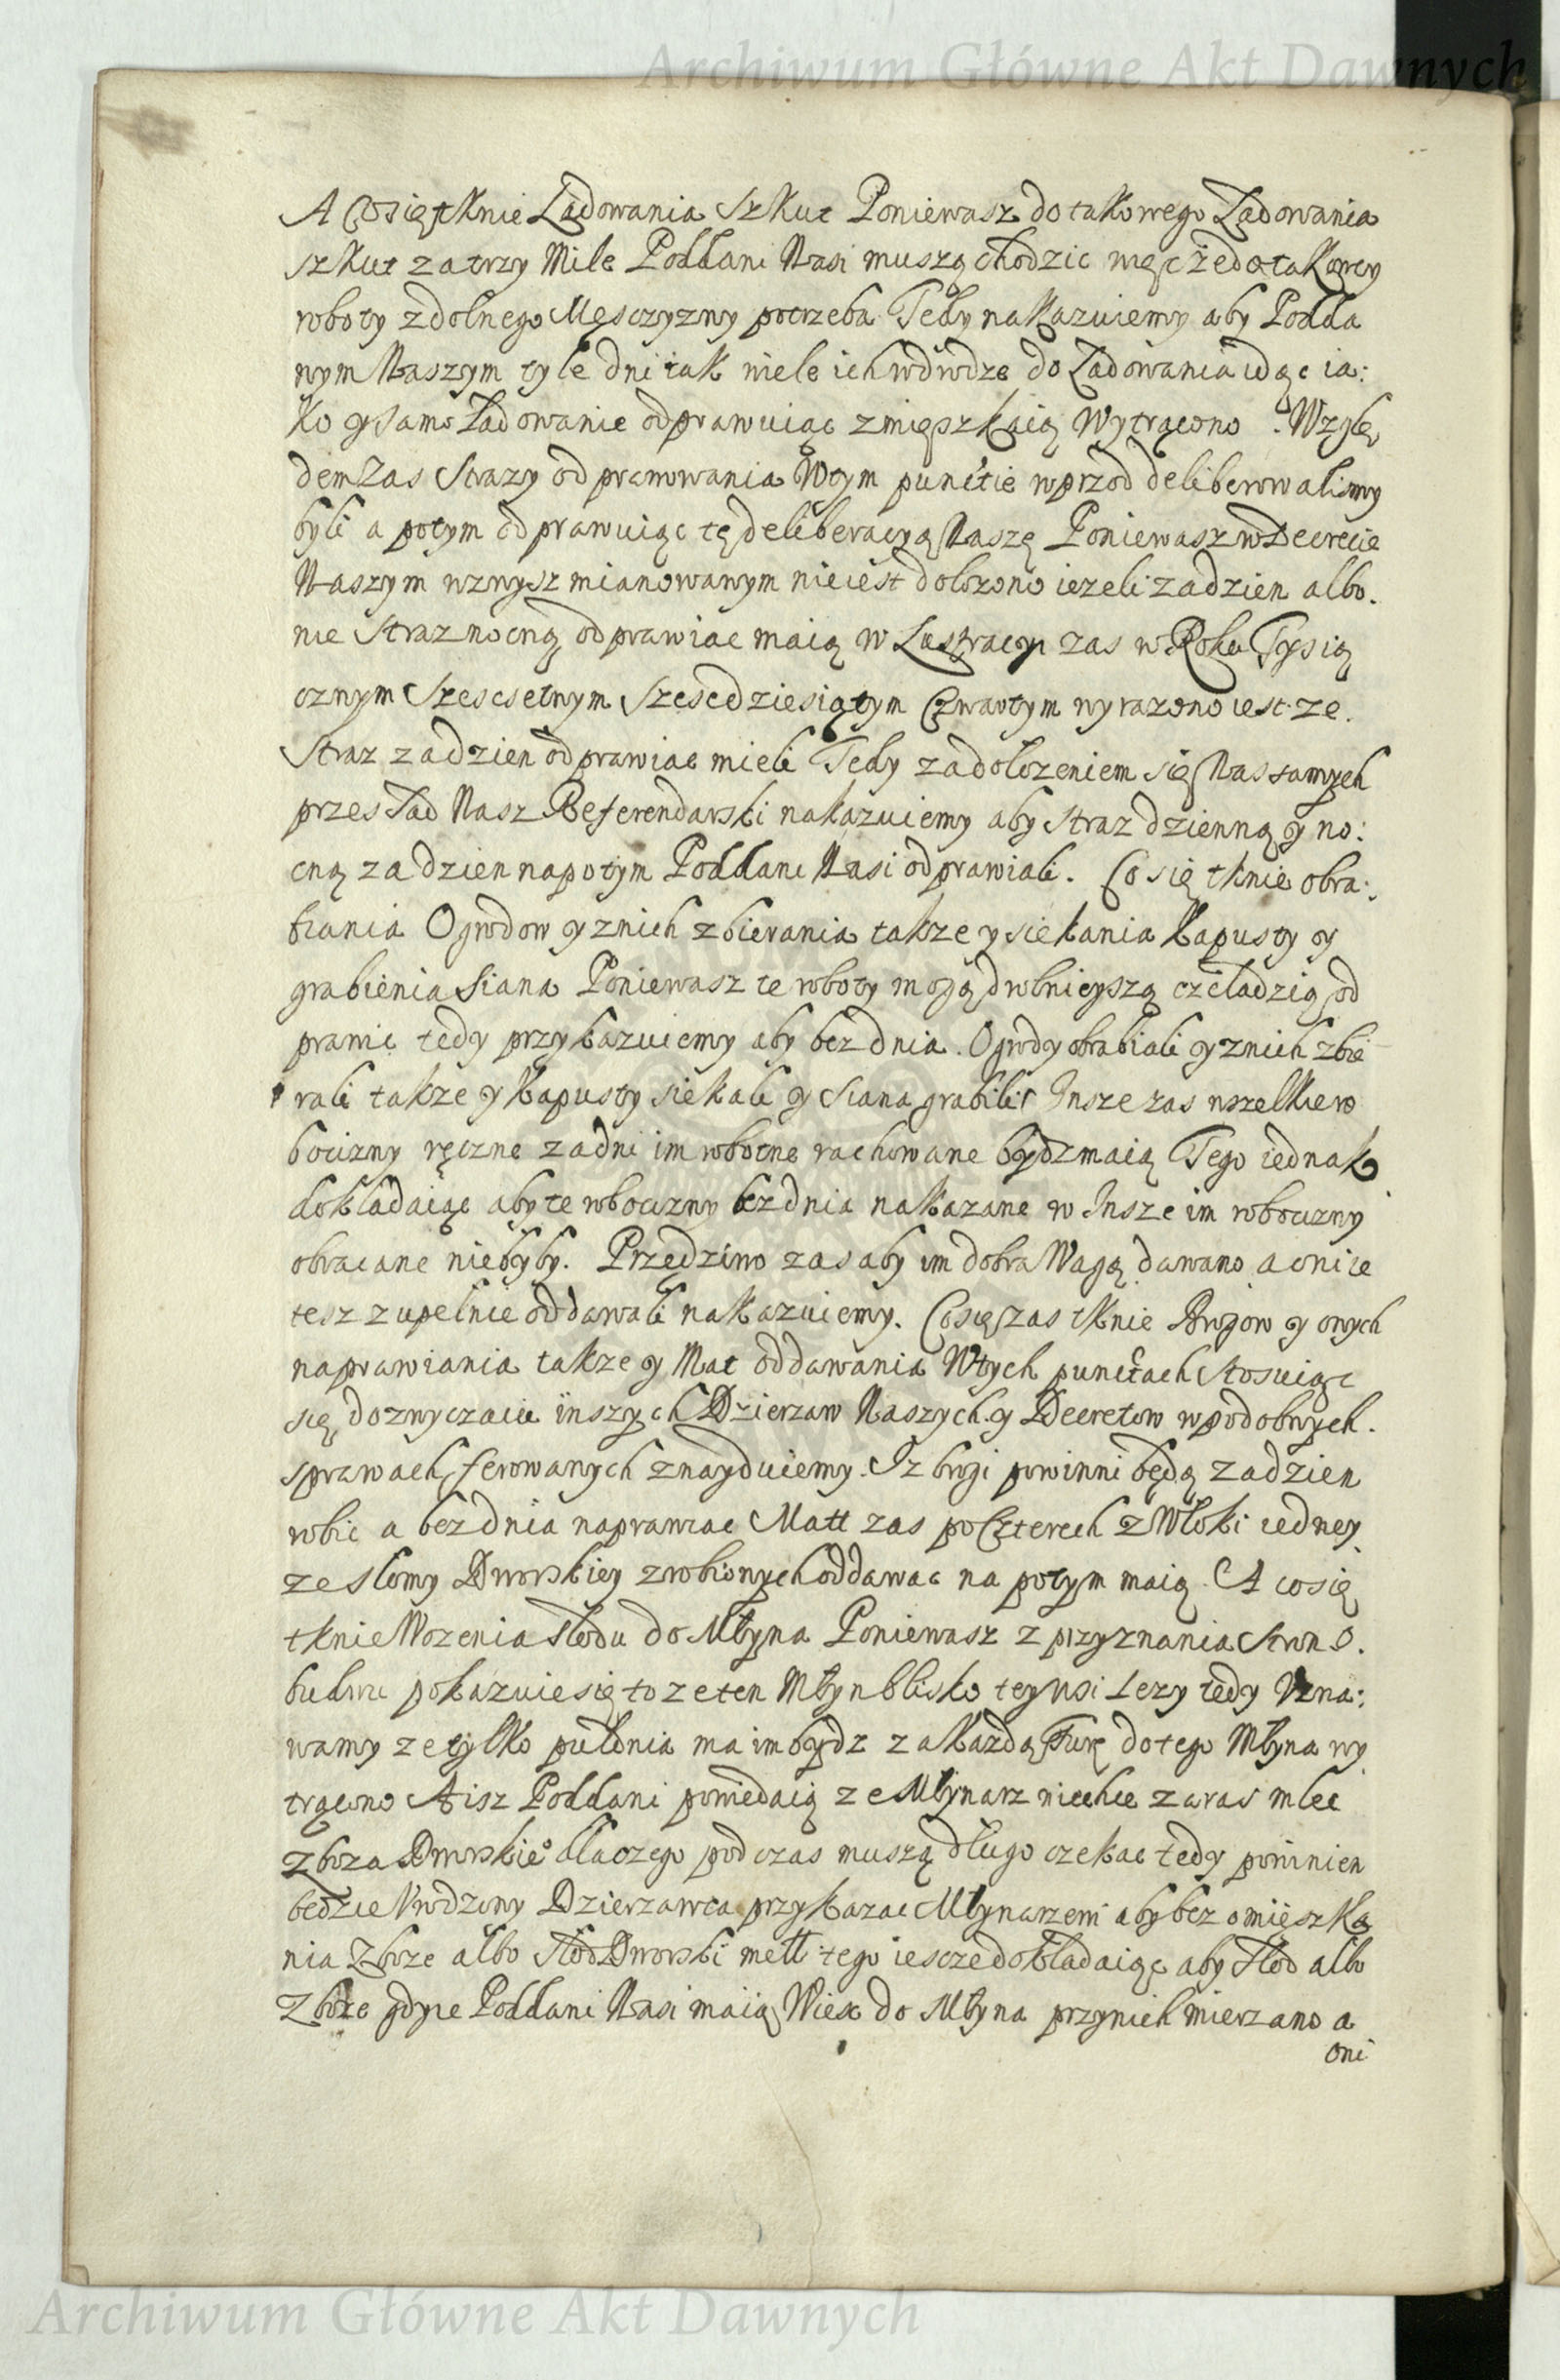 Archiwum Główne Akt Dawnych
A Cosię tknie Ładowania Szkut Poniewasz do takowego Ładowania
szkut za trzy Mile Poddani Nasi muszą chodzic więc że do takowey
roboty zdolnego Męsczyzny potrzeba Tedy nakazuiemy aby Podda
nym Naszym tyle dni iak wiele ich w drodze do Ładowania idąc ia:
ko y samo Ładowanie odprawuiąc zmięszkaią Wytrącono. Wzglę
dem Zas Strazy odprawowania Wtym punctie wprzod deliberowalismy
byli a potym odprawuiąc tę deliberacyą Naszę Poniewasz w Decrecie
Naszym wzwysz mianowanym nieiest dolozono iezeli za dzien albo.
nie Straz nocną odprawiac maią w Lustracyi zas w Roku Tysią
cznym Szescsetnym Szescdziesiątym Czwartym wyrazono iest ze.
Straz za dzien odprawiac mieli Tedy za dolozeniem się Nas samych
przes Sąd Nasz Referendarski nakazuiemy aby Straz dzienną y no:
cną za dzien napotym Poddani Nasi odprawiali. Co się tknie obra:
biania Ogrodow y znich zbierania takze y siekania Kapusty y
grabienia Siana Poniewasz te roboty mogą drobnieyszą czeladzią od
prawic tedy przykazuiemy aby bez dnia. Ogrody obrabiali y znich zbie
rali takze y Kapusty siekali y Siana grabili Insze zas wszelkie ro
bocizny ręczne za dni im robotne rachowane bydz maią Tego iednak
dokładaiąc aby te robocizny bez dnia nakazane w Insze im robocizny
obracane niebyły. Przędziwo zas aby im dobra Wagą dawano a oni ie
tesz zupełnie oddawali nakazuiemy. Co się zas tknie Brogow y onych
naprawiania takze y Mat oddawania Wtych punctach Stosuiąc
się do zwyczaiu inszych Dzierzaw Naszych y Decretow wpodobnych.
sprawach ferowanych znayduiemy. Iz brogi powinni będą za dzien
robic a bez dnia naprawiac Matt zas po Czterech z Włoki iedney
ze słomy Dworskiey zrobionych oddawac na potym maią. A co się
tknie Wozenia słodu do Młyna Poniewasz z przyznania Stron O.
budwu pokazuie się to ze ten Młyn blisko tey wsi Lezy tedy Uzna:
wamy ze tylko puł dnia ma im bydz za kazdą Furę do tego Młyna wy
trącono A isz Poddani powiedaią ze Młynarz niechce zaras mlec
Zboza Dworskieo dlaczego pod czas muszą długo czekac tedy powinien
bedzie Urodzony Dzierzawca przykazac Młynarzowi aby bez omięszka
nia Zboze albo Słod Dworski mełł tego iescze dokładaiąc aby Słod albo
Zboze gdy ie Poddani Nasi maią Wiesc do Młyna przy nich mierzano a
oni
Archiwum Główne Akt Dawnych